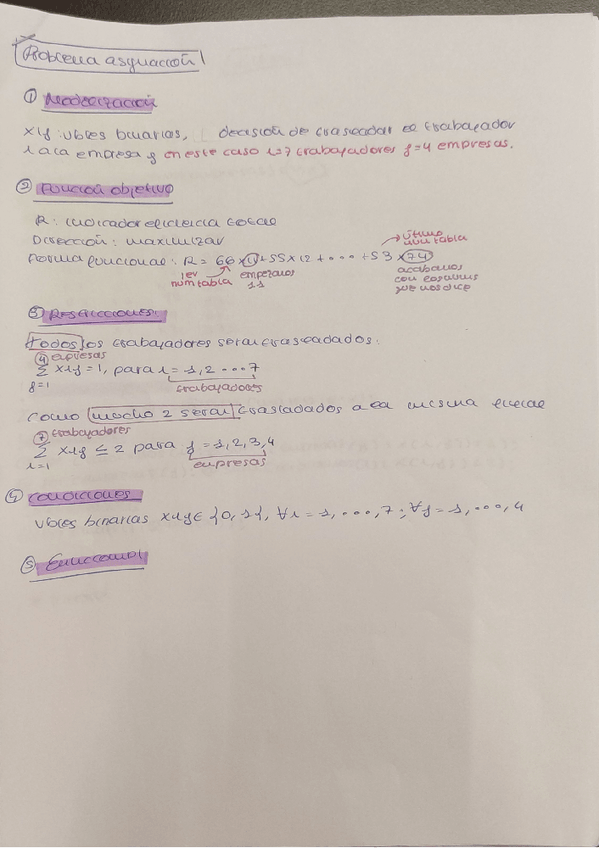 Problema asignación
① Modelización
xij : vbles binarias, decisión de trasladar el trabajador
i a la empresa j en este caso i=7 trabajadores j=4 empresas.
② Función objetivo
R : indicador eficiencia total
Dirección : maximizar
último
num tabla
Forma funcional : R = 66 x 11 + 55 x 12 + ... + 53 x 74
1er
num tabla
empezamos
11
acabamos
con
que nos dice
③ Restricciones:
Todos los trabajadores serán trasladados:
④ empresas
Σ xij = 1, para i = 1, 2 ... 7
j=1
trabajadores
Como mucho 2 serán trasladados a la misma
⑦ trabajadores
Σ xij ≤ 2 para j = 1, 2, 3, 4
i=1
empresas
④ Condiciones
Vbles binarias xij ∈ {0, 1}, ∀i = 1, ..., 7 ; ∀j = 1, ..., 4
⑤